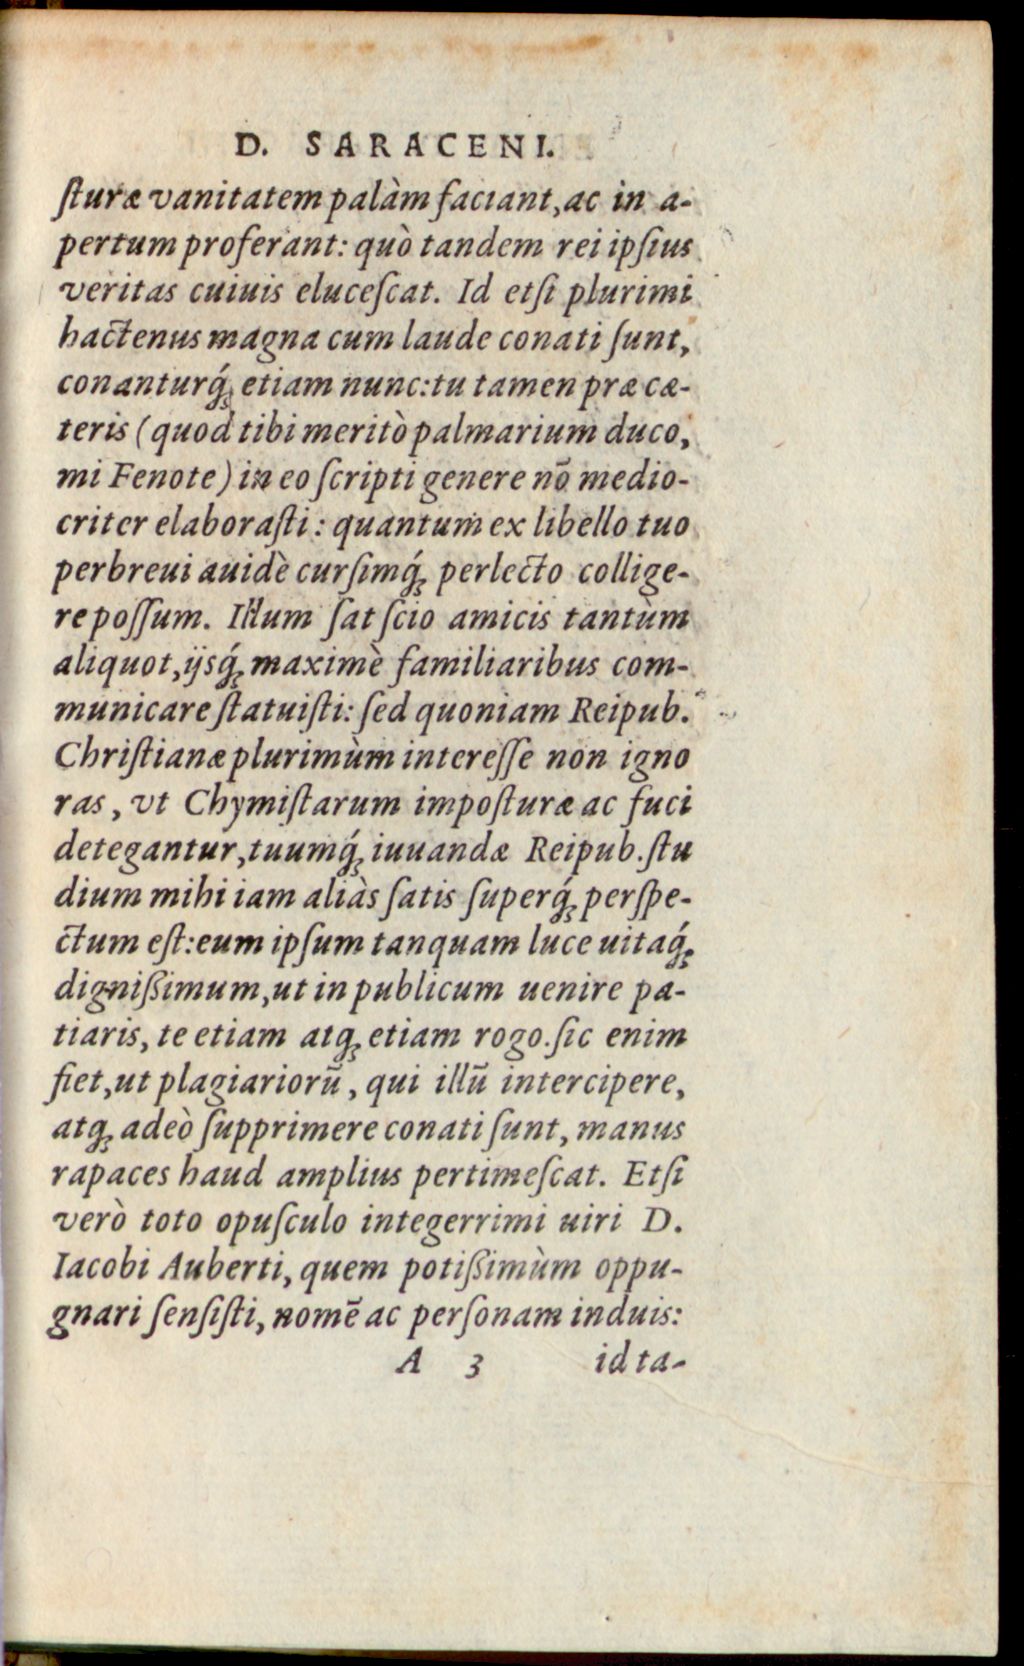 D. SARACENI.
ſturæ vanitatem palàm faciant, ac in a-
pertum proferant: quò tandem rei ipſius
veritas cuiuis eluceſcat. Id etſi plurimi
hactenus magna cum laude conati ſunt,
conanturq́; etiam nunc: tu tamen præ cæ-
teris (quod tibi meritò palmarium duco,
mi Fenote) in eo ſcripti genere nō medio-
criter elaboraſti: quantum ex libello tuo
perbreui auidè curſimq́; perlecto collige-
re poſſum. Illum ſat ſcio amicis tantùm
aliquot, ijsq́; maximè familiaribus com-
municare ſtatuiſti: ſed quoniam Reipub.
Chriſtianæ plurimùm intereſſe non igno
ras, vt Chymiſtarum impoſturæ ac fuci
detegantur, tuumq́; iuuandæ Reipub. ſtu
dium mihi iam aliàs ſatis ſuperq́; perſpe-
ctum eſt: eum ipſum tanquam luce uitaq́;
digniſſimum, ut in publicum uenire pa-
tiaris, te etiam atq; etiam rogo. ſic enim
fiet, ut plagiariorū, qui illū intercipere,
atq; adeò ſupprimere conati ſunt, manus
rapaces haud amplius pertimeſcat. Etſi
verò toto opuſculo integerrimi uiri D.
Iacobi Auberti, quem potiſſimùm oppu-
gnari ſenſiſti, nomē ac perſonam induis:
A 3 id ta-